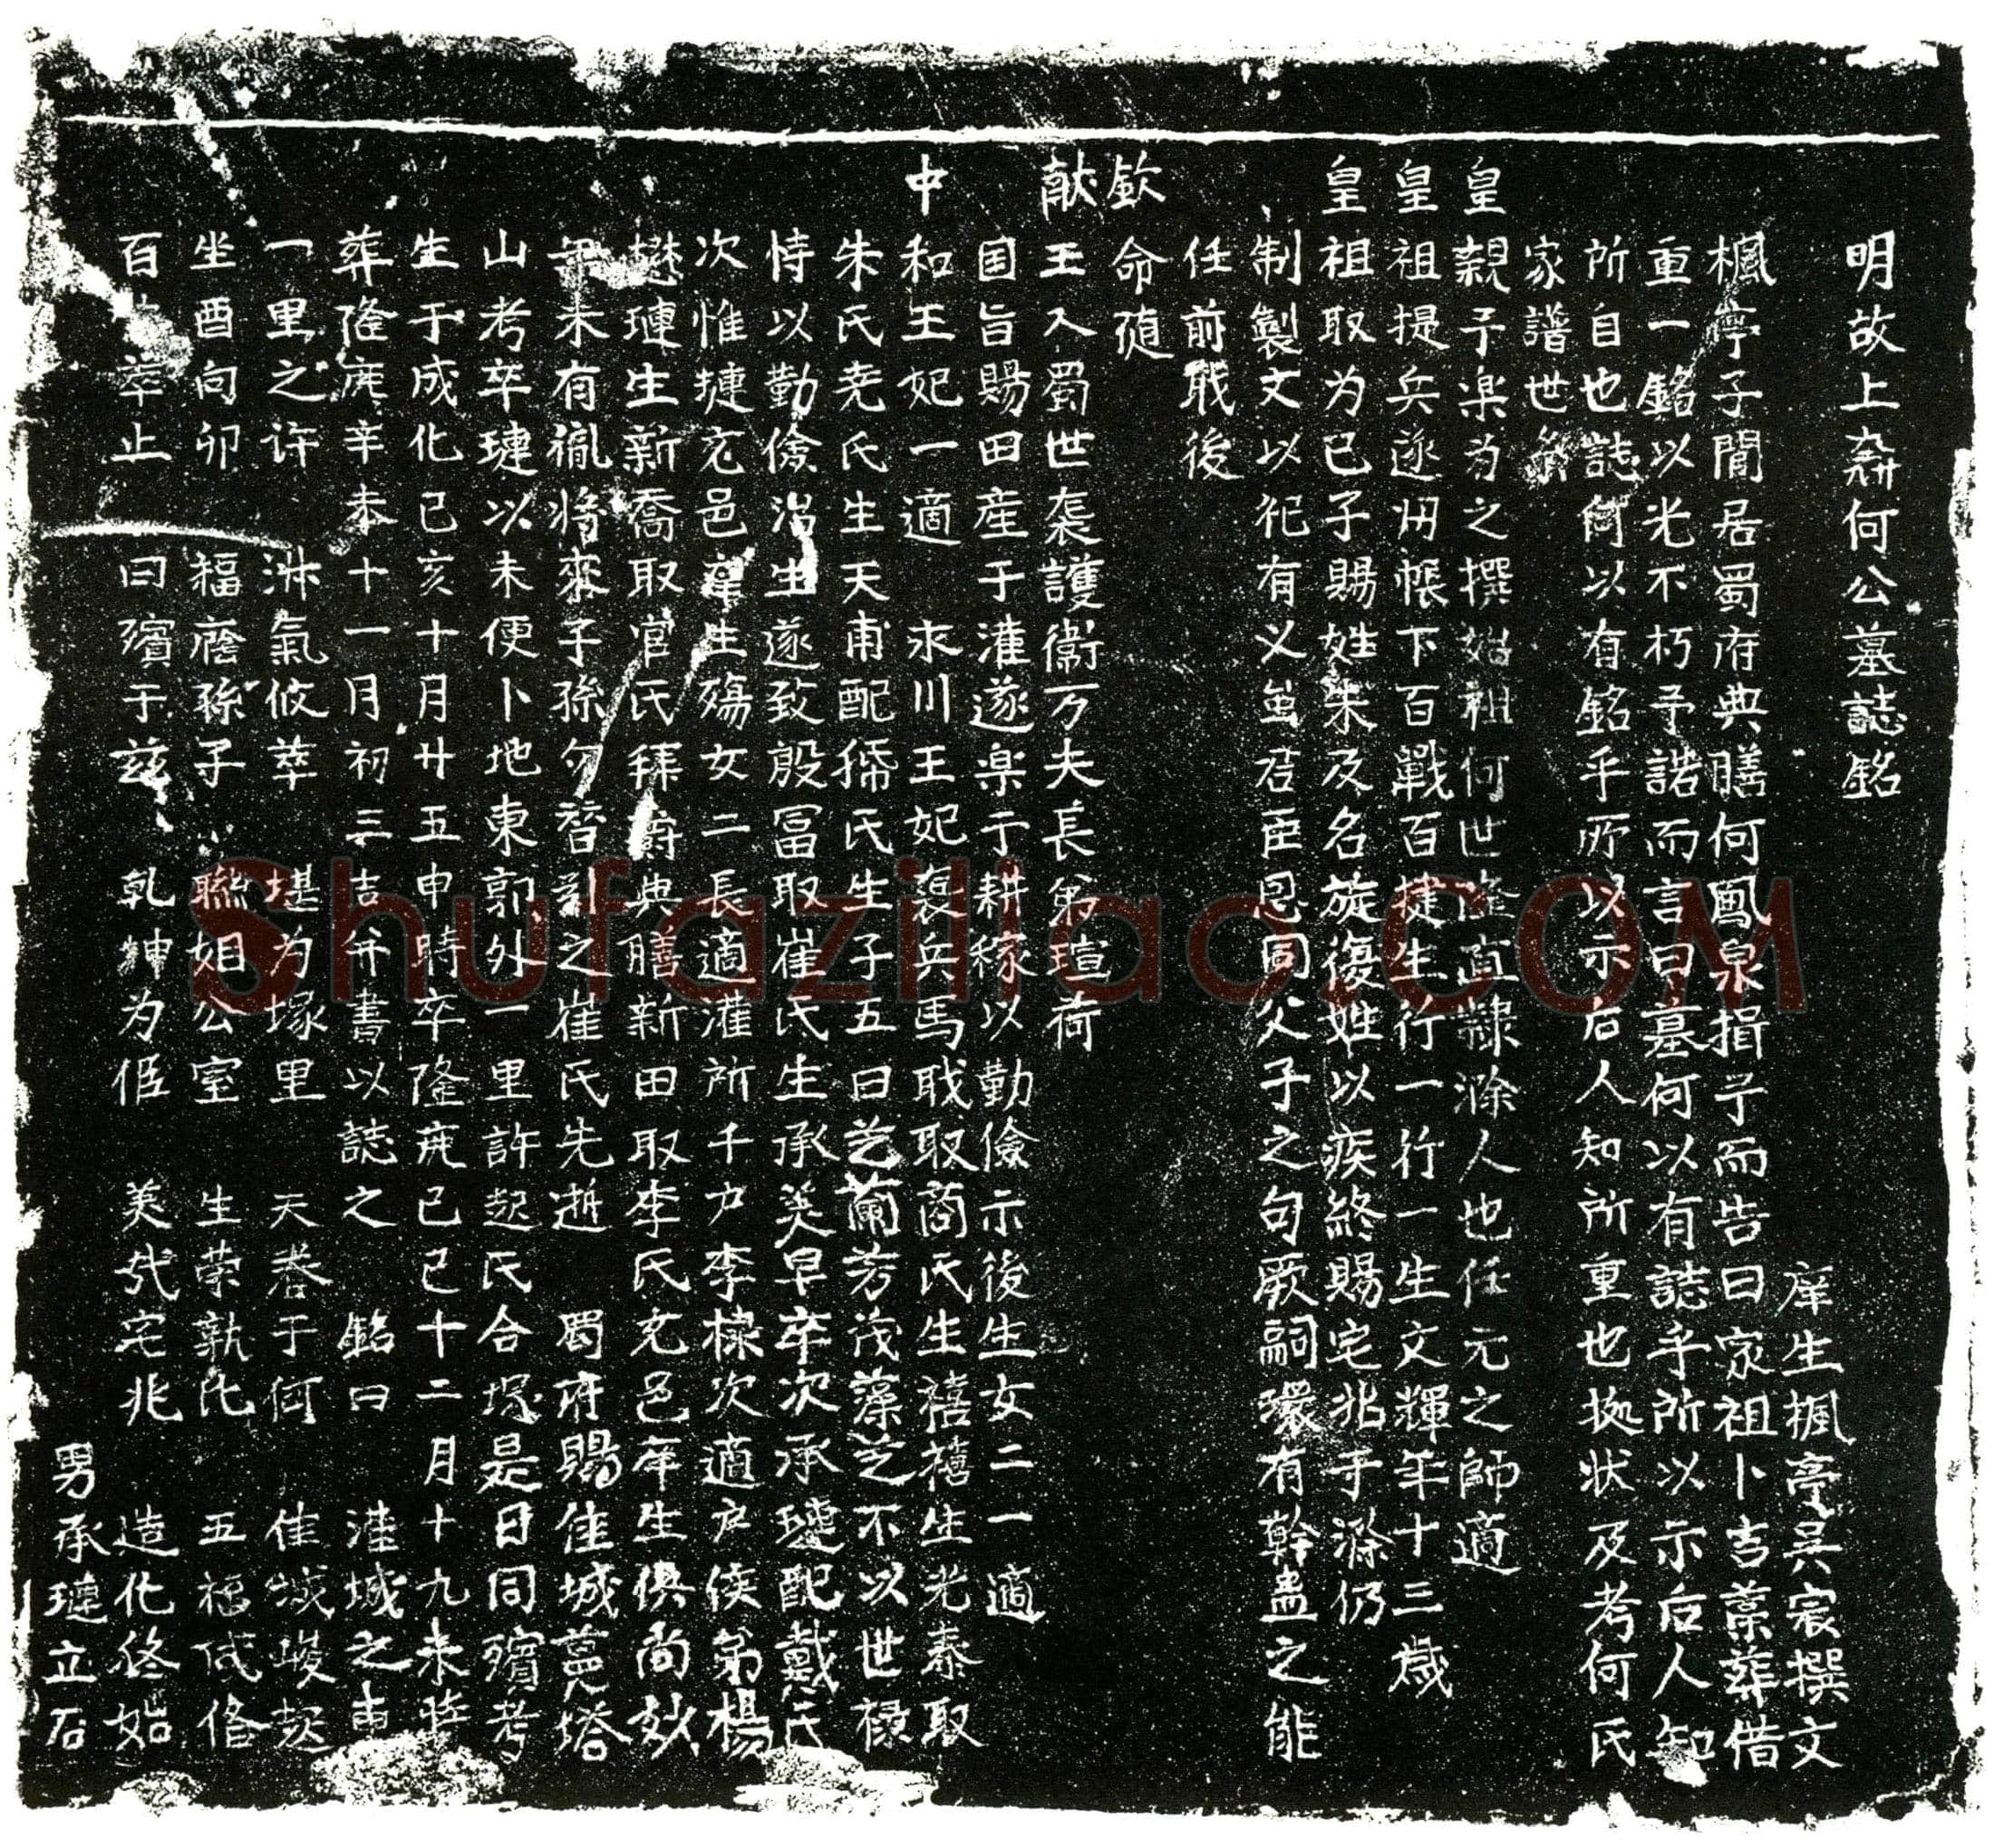 明故上寿何公墓誌銘
庠生楓亭吴宸撰文
楓亭子閒居蜀府典膳何鳳泉揖予而告曰家祖卜吉藁葬借
重一銘以光不朽予諾而言曰墓何以有誌乎所以示后人知
所自也誌何以有銘乎所以示后人知所重也拠状及考何氏
家譜世系
皇親予楽为之撰始祖何世隆直隷滁人也任元之師適
皇祖提兵逐州帳下百戰百捷生行一行一生文輝年十三歲
皇祖取为已子賜姓朱及名旋復姓以疾終賜宅兆于滁仍
制製文以祀有义虽君臣恩同父子之句厥嗣環有幹蛊之能
任前戝後
欽命随
献王入蜀世袭護衞万夫長弟瑄荷
国旨賜田産于灌遂楽于耕稼以勤儉示後生女二一適
中和王妃一適 永川王妃襲兵馬戝取商氏生禧禧生光泰取
朱氏尭氏生天甫配 氏生子五曰芝蘭芳茂藻之不以世禄
恃以勤儉治生遂致殷冨取崔氏生承美早卒次承璉配戴氏
次惟捷充邑 生殤女二長適灌所千户李棣次適户侯弟楊
懋璉生新喬取官氏拜爵典膳新田取李氏充邑庠生俱尚㓜
未有胤将來子孫勿替 之崔氏先逝 蜀府賜佳城 塔
山考卒璉以未便卜地東郭外一里許起氏合塚是日同殯考
生于成化己亥十月廿五申時卒隆庆己巳十二月十九未將
葬隆庆辛未十一月初三吉并書以誌之 銘曰 灌城之東
一里之许 淋氣攸萃 堪为塚里 天眷于何 佳城峻起
坐酉向卯 福廕孫子 聮姻公室 生荣孰比 五福俻
百 萃止 曰殯于兹 乾坤为侶 美哉宅兆 造化终始
男承璉立石
Shufaziliao.COM